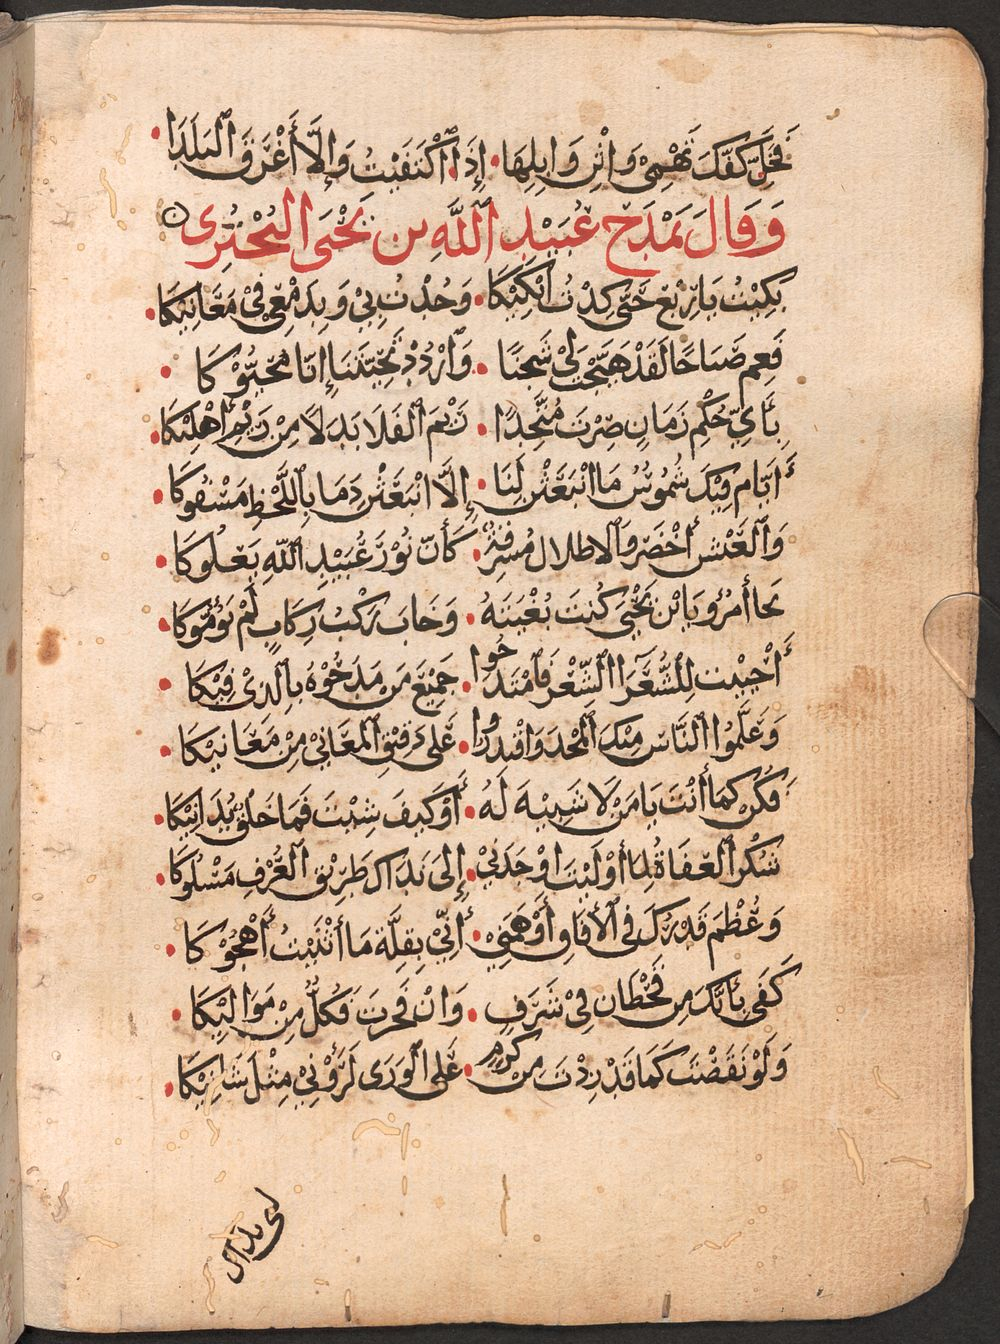 فَخَلِّ كَفَّكَ تَهْمِيْ وَاثْنِ وَابِلِهَا • إِذَا اكْتَفَيْتُ وَإِلَّا أَغْرَقَ الْبَلَدَا •
وَقَالَ يَمْدَحُ عُبَيْدِ اللَّهِ بن يَحْيَى الْبُحْتُرِى ن
بَكِيْتُ يَا رَبْعُ حَتَّى كِدْتُ ابْكِيْكَا • وَجُدْتُ بِيْ وَبِدَمْعِي فِيْ مَغَانِيْكَا •
فَعِم صَبَاحًا لَقَدْ هَيَّجْتَ لِيْ شَجَنًا • وَارْدُدْ تَحِيَّتَنَا إِنَّا مُحَيُّوْكَا •
بِأَيِّ حُكْمِ زَمَانٍ صِرْتَ مُتَّخِذًا • رَئْمَ الْفَلَا بَدَلًا مِنْ رَئْمِ أَهْلِيْكَا •
أَيَّامَ فِيْكَ شُمُوْسٌ مَا انْبَعَثْنَ لَنَا • إِلَّا انْبَعَثْنَ دَمَا بِاللَّحْظِ مَسْفُوكَا •
وَالْعَيْشُ أَخْضَرُ وَالاطْلَالُ مُشرِفَةٌ • كَأَنَّ نُوْرَ عُبَيْدِ اللَّهِ يَعْلُوكَا •
نَجَا أمْرُؤٌ يَا بْنَ يَحْيَى كُنْتَ بُغْيَتَهُ • وَخَابَ رَكْبُ رِكَابٍ لَمْ يَؤُمُّوكَا •
أَحْيَيْتَ لِلشُّعَرَآ الشِّعْرَ فَامْتَدَحُوا • جَمِيْعَ مَن مَدَحُوْهُ بِالَّذِيْ فِيْكَا •
وَعَلَّمُوا النَّاسَ مِنْكَ الْمَجْدَ وَاقْتَدَرُوا • عَلَى دَقِيْقِ الْمَعَانِيْ مِنْ مَعَانِيْكَا •
فَكُنْ كَمَا أَنْتَ يَا مَنْ لَا شَبِيْهَ لَهُ • أَوْ كَيْفَ شِيْتَ فَمَا خَلْقٌ يُدَانِيْكَا •
شُكْرُ الْعُفَاةِ لِمَا أَوْلَيْتَ اوْجَدَنِيْ • إِلَى نَدَاكَ طَرِيْقَ الْعُرْفِ مَسْلُوكَا •
وَعُظْمُ قَدْرِكَ فِي الْأَفَاقِ أَوْهَمَنِيْ • أَنِّيْ بِقِلَّةِ مَا أَثْنَيْتُ أَهْجُوْكَا •
كَفَى بِأَنَّكَ مِن قَحْطَانَ فِيْ شَرَفٍ • وَانْ فَخَرْتَ فَكُلٌّ مِنْ مَوَالِيْكَا •
وَلَوْ نَقَصْتُ كَمَا قَدْ زِدْتَ مِن كَرَمٍ • عَلَى الْوَرَى لَرَأَوْنِيْ مِثْلَ شَانِيْكَا •
لبى نداك